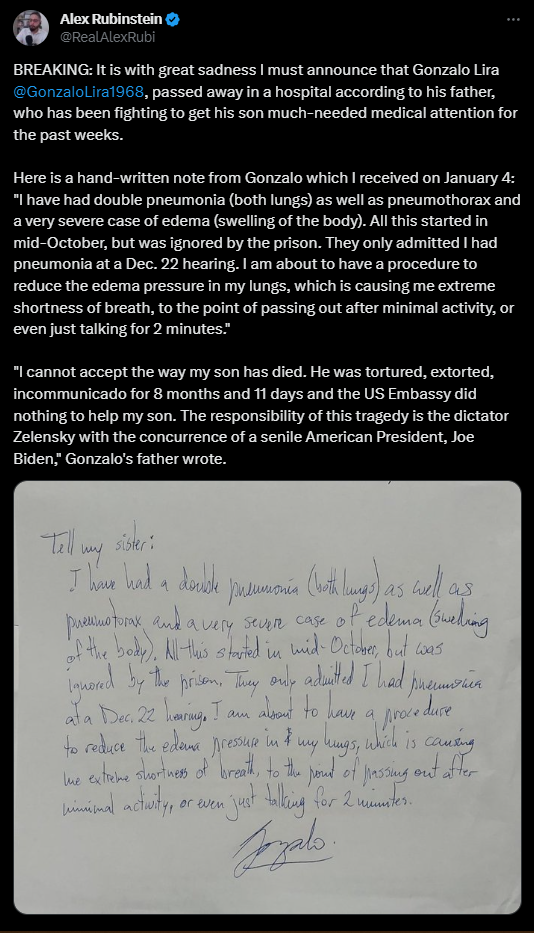 Alex Rubinstein
@RealAlexRubi
BREAKING: It is with great sadness I must announce that Gonzalo Lira
@GonzaloLira1968, passed away in a hospital according to his father,
who has been fighting to get his son much-needed medical attention for
the past weeks.
Here is a hand-written note from Gonzalo which I received on January 4:
"I have had double pneumonia (both lungs) as well as pneumothorax and
a very severe case of edema (swelling of the body). All this started in
mid-October, but was ignored by the prison. They only admitted I had
pneumonia at a Dec. 22 hearing. I am about to have a procedure to
reduce the edema pressure in my lungs, which is causing me extreme
shortness of breath, to the point of passing out after minimal activity, or
even just talking for 2 minutes."
"I cannot accept the way my son has died. He was tortured, extorted,
incommunicado for 8 months and 11 days and the US Embassy did
nothing to help my son. The responsibility of this tragedy is the dictator
Zelensky with the concurrence of a senile American President, Joe
Biden," Gonzalo's father wrote.
Tell my sister:
I have had a double pneumonia (both lungs) as well as
pneumotorax and a very severe case of edema (swelling
of the body). All this started in mid-October, but was
ignored by the prison. They only admitted I had pneumonia
at a Dec. 22 hearing. I am about to have a procedure
to reduce the edema pressure in my lungs, which is causing
me extreme shortness of breath, to the point of passing out after
minimal activity, or even just talking for 2 minutes.
Gonzalo.